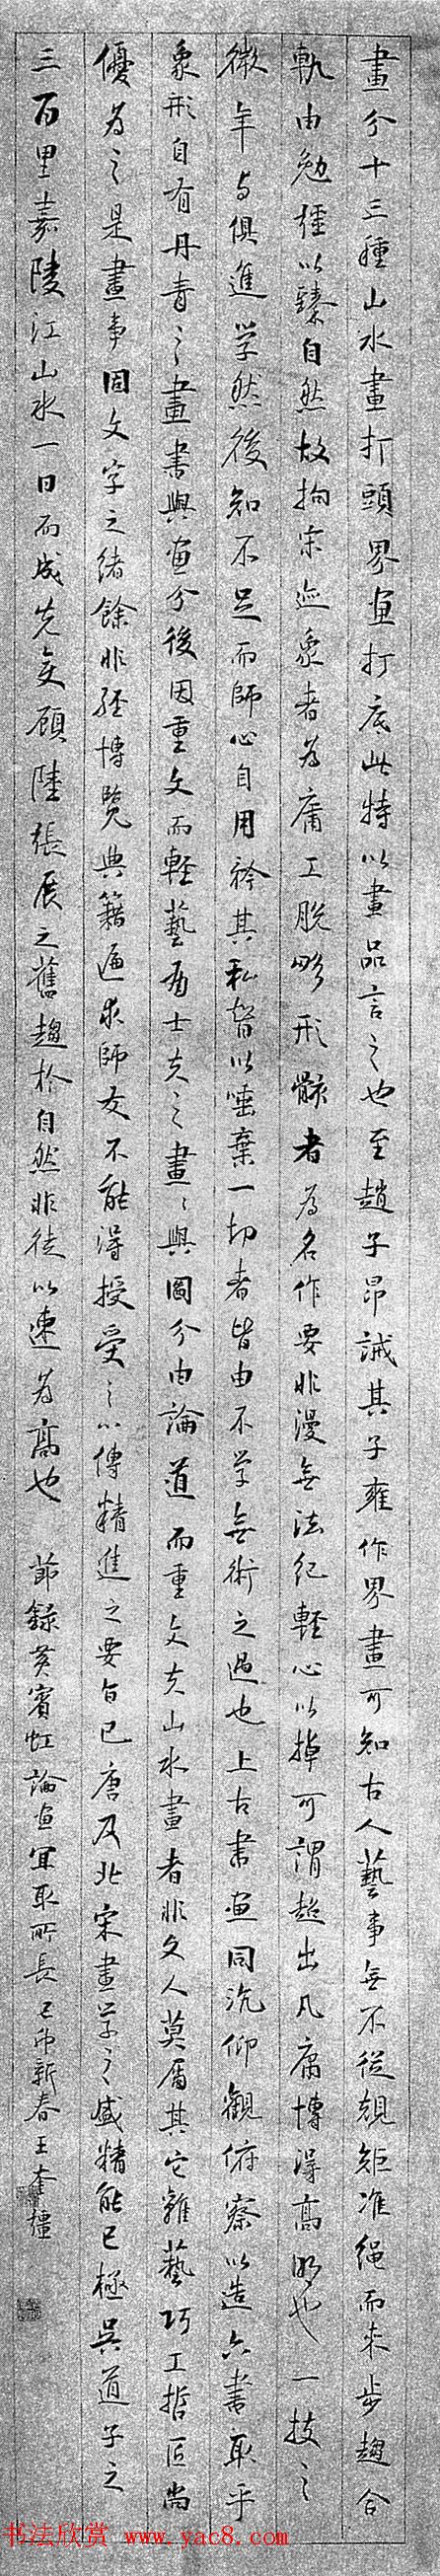 畫分十三種山水畫打頭界画打底此特以畫品言之也至趙子昂誡其子雍作界畫可知古人藝事無不從規矩準繩而來步趨合
軌由勉強以臻自然故拘宋迹象者為庸工脫略形骸者為名作要非漫無法紀輕心以掉可謂超出凡庸博得高明也一技之
微年與俱進学然後知不足而師心自用矜其私智以唾棄一切者皆由不学無術之過也上古書画同沇仰觀俯察以造六書取乎
象形自有丹青之畫書與画分後因重文而輕藝有士夫之畫畫與圖分由論道而重文夫山水畫者非文人莫屬其它雜藝巧工哲匠尚
優為之是畫事固文字之緒餘非經博覽典籍遍求師友不能得授受之心傳精進之要旨已唐及北宋畫学之盛精能已極吳道子之
三百里嘉陵江山水一日而成先變顧陸張展之舊趨於自然非徒以速為高也 節錄黃賓虹論画宜取所長 己卯新春王奎
书法欣赏 www.yac8.com